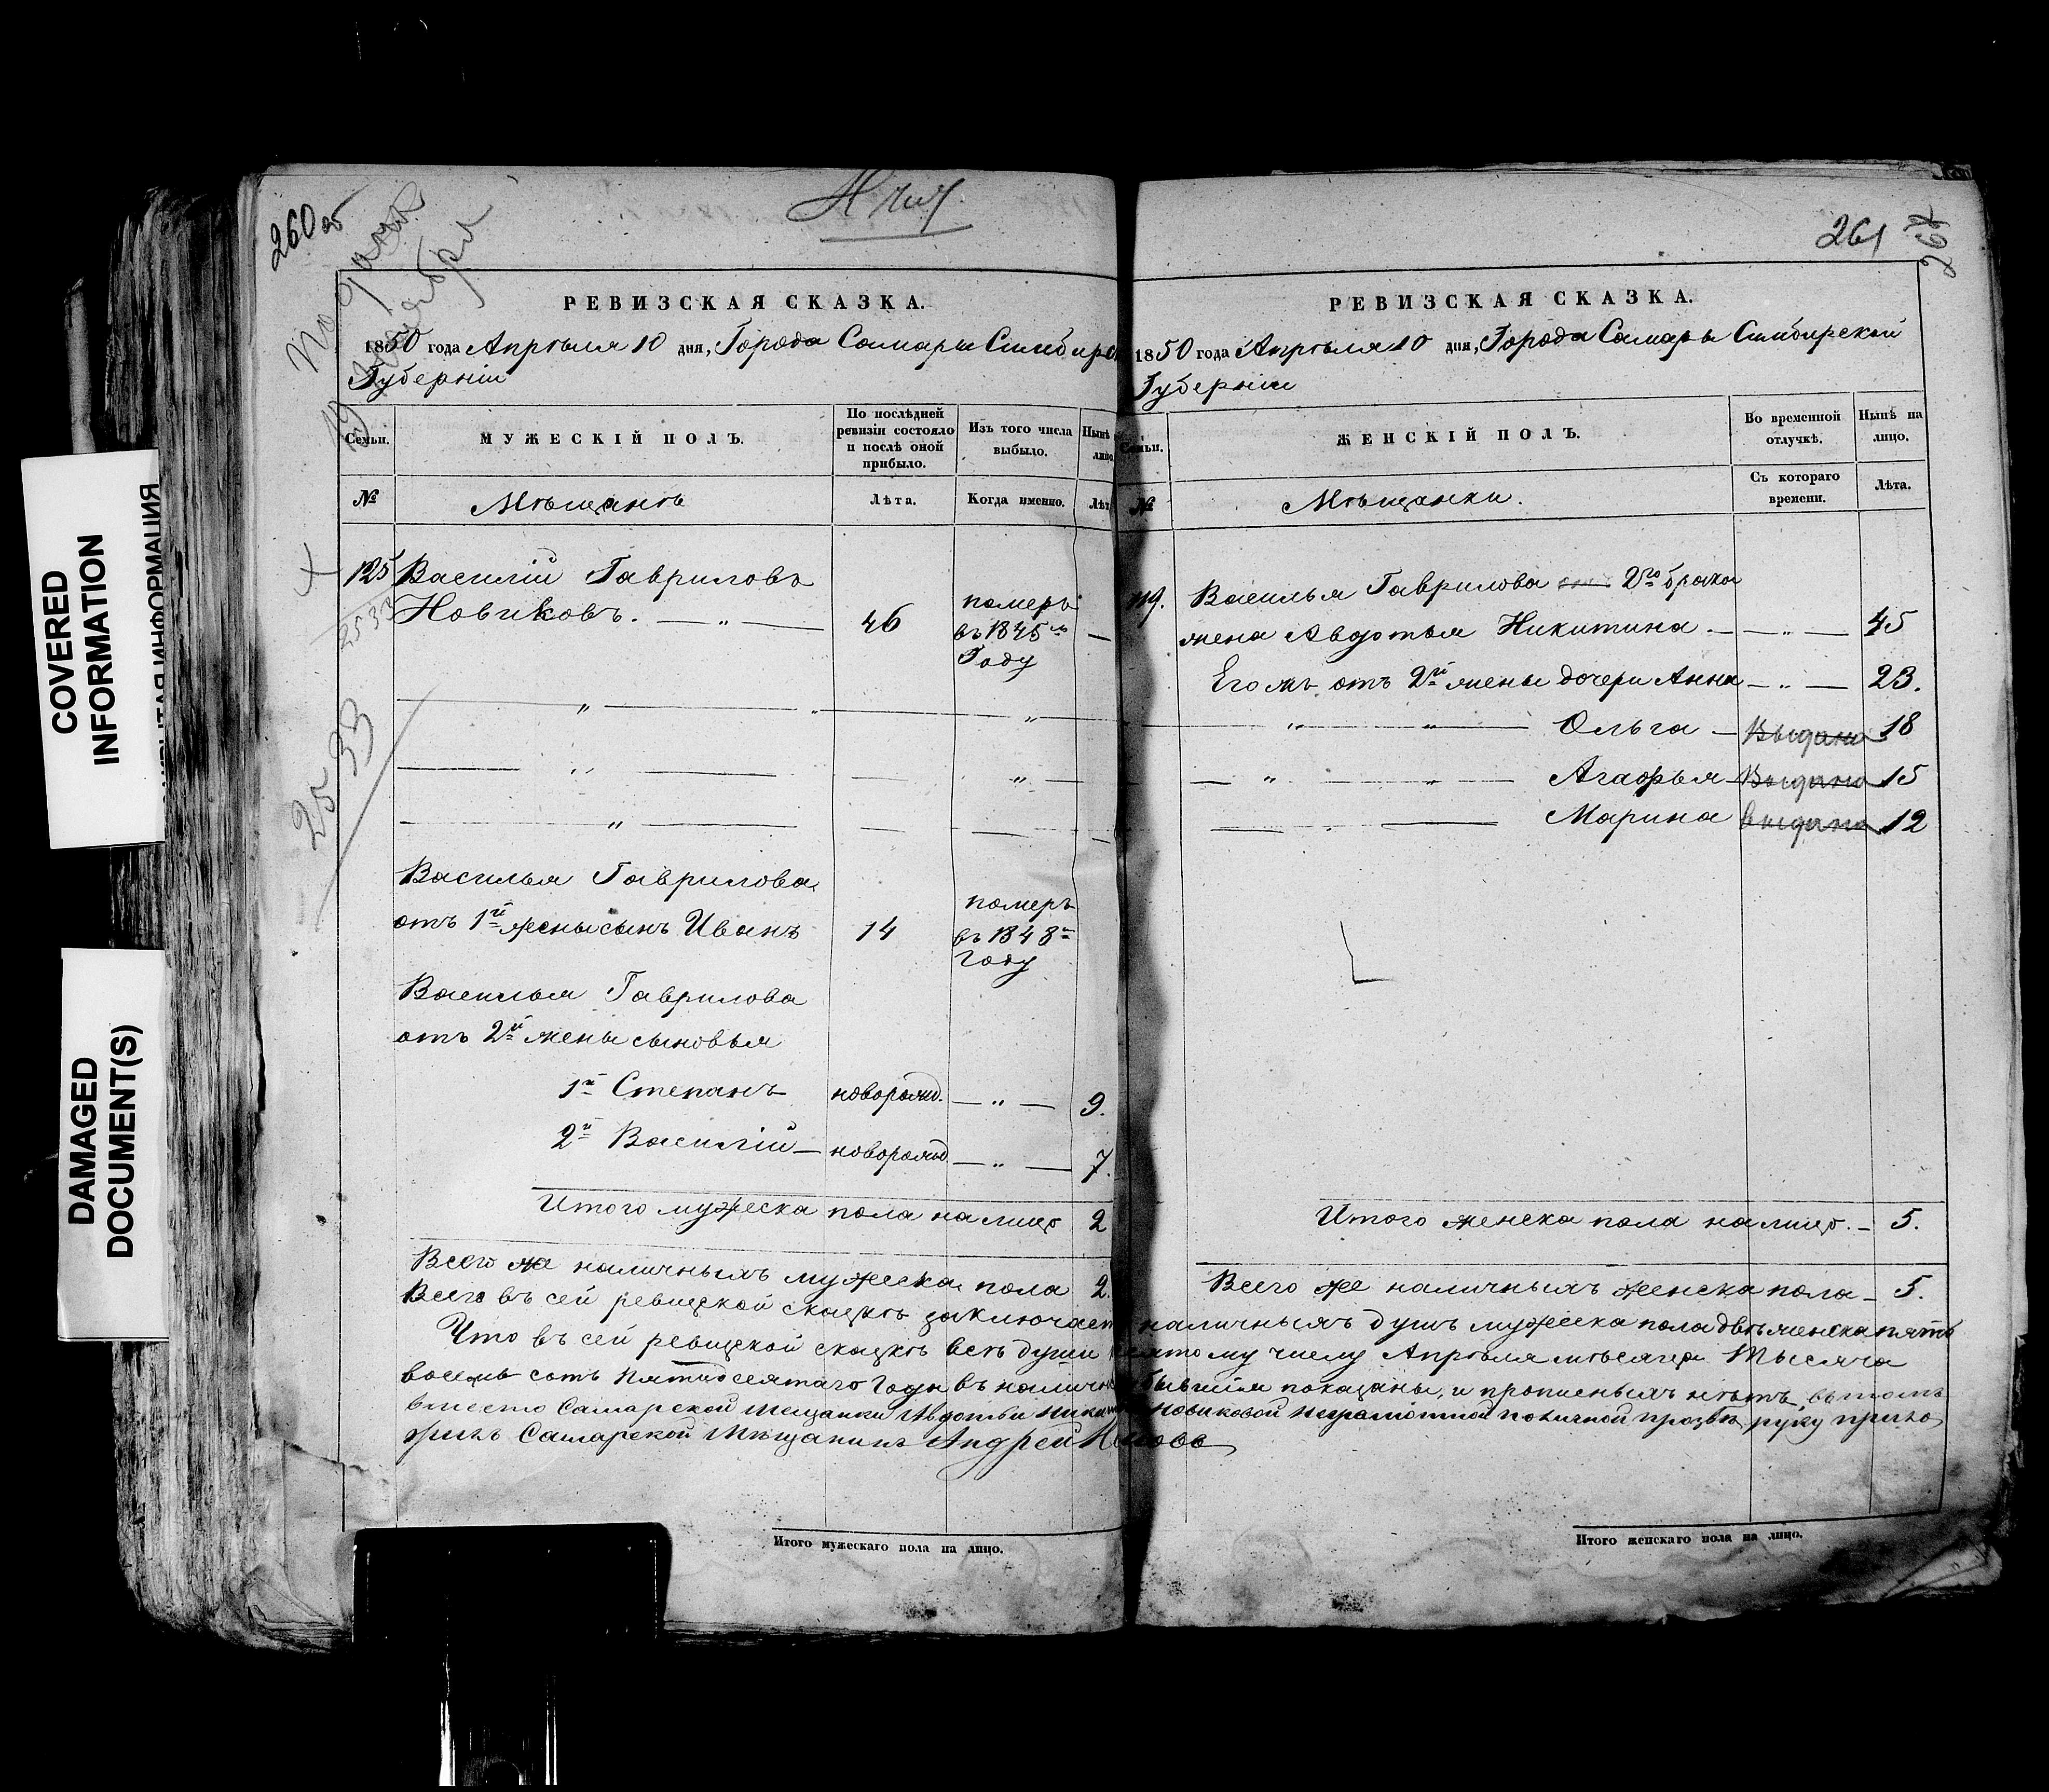 260 об
Подана
19 Ноября
РЕВИЗСКАЯ СКАЗКА.
1850 года Апрѣля 10 дня, Города Самары Симбирс
Губерніи
Семьи.
МУЖЕСКІЙ ПОЛЪ.
По послѣдней ревизіи состояло и послѣ оной прибыло.
Изъ того числа выбыло.
Нынѣ
лицо.
№
Мѣщанѣ
Лѣта.
Когда именно.
Лѣт
125 Василій Гавриловъ
Новиковъ. — „ — 46 померъ въ 1845мъ Году —
2533
2533
Василья Гаврилова
отъ 1й жены сынъ Иванъ 14 померъ въ 1848м Году
Василья Гаврилова
отъ 2й жены сыновья
1й Степанъ новорожд. — „ — 9.
2й Василій — новорожд — „ — 7.
Итого мужеска пола налицо 2
Всего же наличныхъ мужеска пола 2.
Всего въ сей ревизской сказкѣ заключает
Что въ сей ревизской сказкѣ всѣ души
восемь сотъ пятидесятаго Года въ наличн
вместо Самарской мещанки Авдотьи Никит
жилъ Самарской Мѣщанинъ Андрей
Итого мужескаго пола на лицо.
261
РЕВИЗСКАЯ СКАЗКА.
1850 года Апрѣля 10 дня, Города Самары Симбирской
Губерніи
Семьи.
ЖЕНСКІЙ ПОЛЪ.
Во временной отлучкѣ.
Нынѣ на лицо.
№
Мѣщанки.
Съ котораго времени.
Лѣта.
119. Василья Гаврилова 2го брака
жена Авдотья Никитина — — „ — 45
Его жъ отъ 2й жены дочери Анна — „ — 23.
„ „ Ольга — Выдана 18
„ „ Агафья — Выдана 15
Марина выдана 12
Итого женска пола налицо. — 5.
Всего же наличныхъ женска пола — 5.
наличныхъ душъ мужеска пола двѣ женска пять
десятому числу Апрѣля мѣсяца Тысяча
бывшія показаны, и прописныхъ нѣтъ, въ томъ
Новиковой неграмотной по личной прозьбѣ руку прило
Итого женскаго пола на лицо.
COVERED
INFORMATION
СКРЫТАЯ ИНФОРМАЦИЯ
DAMAGED
DOCUMENT(S)